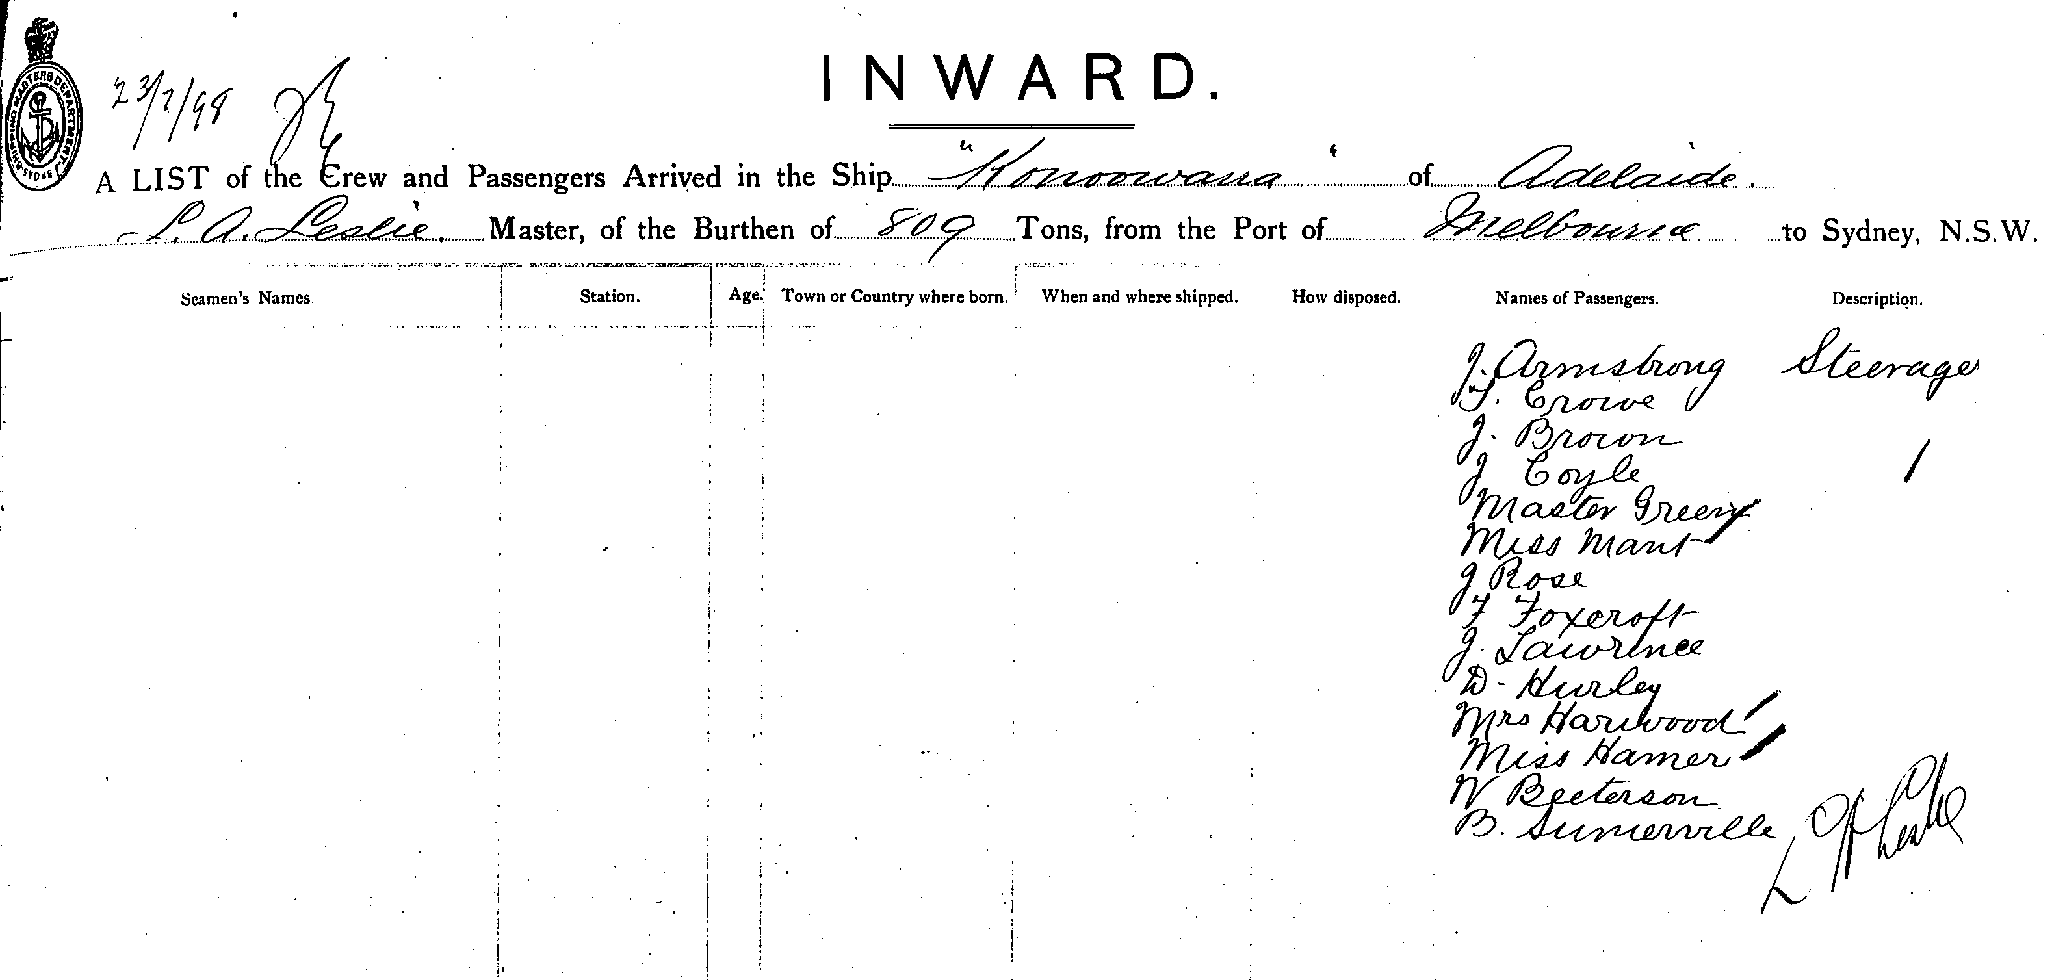 INWARD.
SHIPPING MASTERS DEPARTMENT SYDNEY
23/7/98
A LIST of the Crew and Passengers Arrived in the Ship "Konoowana" of Adelaide.
L. A. Leslie. Master, of the Burthen of 809 Tons, from the Port of Melbourne to Sydney, N.S.W.
Seamen's Names Station. Age. Town or Country where born. When and where shipped. How disposed. Names of Passengers. Description.
J. Armstrong Steerage
J. Crowe
J. Brown
J Coyle
Master Green
Miss Mant
J Rose
F Foxcroft
J. Lawrence
D. Hurley
Mrs Harwood
Miss Hamer
W Beeterson
B. Sumerville
L A Leslie